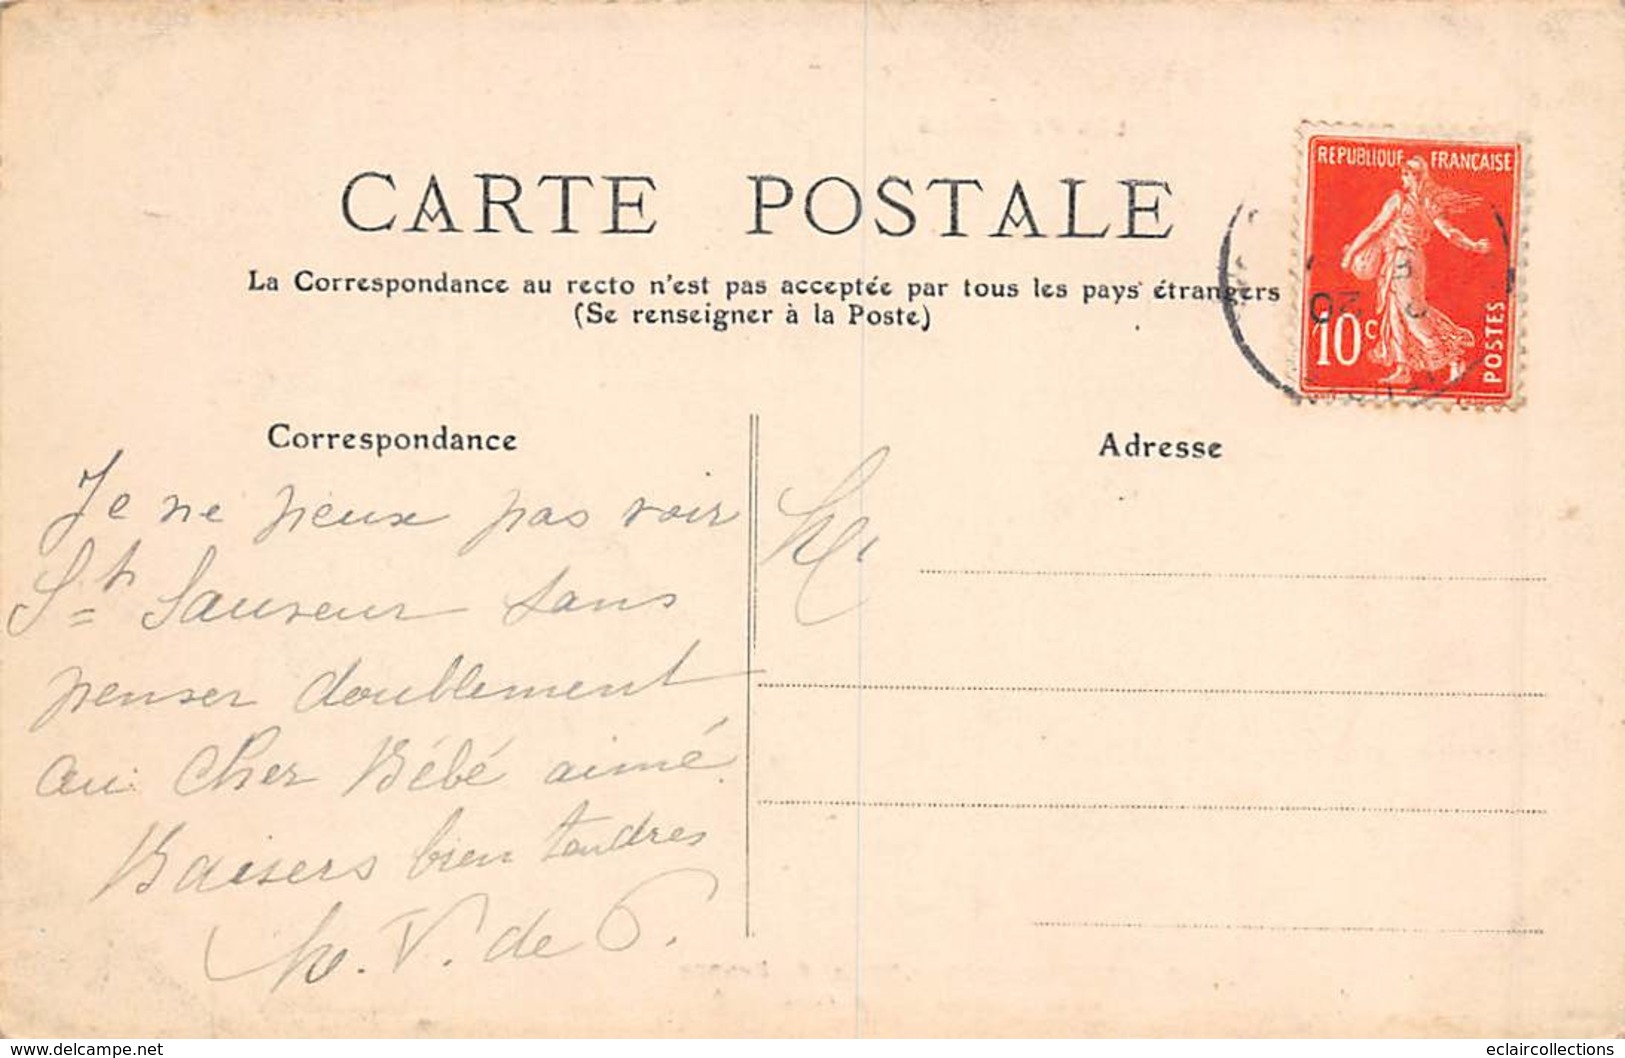 CARTE POSTALE
La Correspondance au recto n'est pas acceptée par tous les pays étrangers
(Se renseigner à la Poste)
REPUBLIQUE FRANÇAISE
10c
POSTES
20
Correspondance
Je ne peux pas voir
St Sauveur sans
penser doublement
au cher Bébé aimé
Baisers bien tendres
V. de
Adresse
www.delcampe.net
eclaircollections